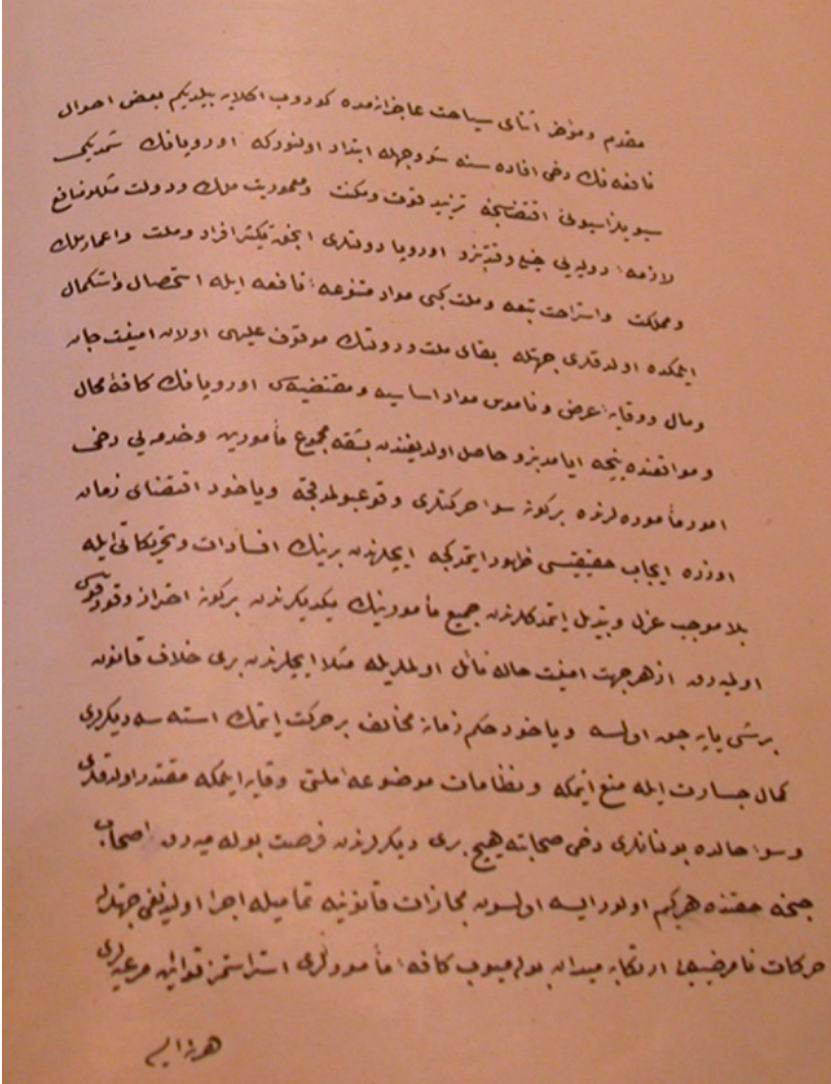 مقدم ومؤخر اثنای سیاحت عاجزانه مده کوروب اکلایه بیلدیکم بعض احوال
نافعه نك دخی افاده سنه شو وجهله ابتدار اولنور که اوروپانك شمدیکی
سیویلزاسیونی اقتضاسنجه تزیید قوت ومکنت ومعموریت ملك ودولت مثللو منافع
لازمه دولیه یی اوروپا دولتلری انجق تکثر افراد وملت واعمار ملك
ومملکت واستراحت تبعه وملت کبی مواد متنوعهٔ نافعه ایله استحصال واستکمال
ایتمکده اولدقلری جهتله بقای ملت ودولتك موقوف علیهی اولان امنیت جان
ومال ووقایهٔ عرض وناموس مواد اساسیه ومقتضیه سی اوروپانك کافهٔ محال
ومواقعنده نیجه ایامدنبرو حاصل اولدیغندن بشقه مجموع مأمورین وخدمه یی دخی
امور مأموره لرنده برکونه سوء حرکتلری وقوعبولمدقجه ویاخود اقتضای زمان
اوزره ایجاب حقیقیسی ظهور ایتمدکجه ایچلرندن برینك افسادات وتحریکاتی ایله
بلا موجب عزل وتبدیل ایتمدکلرندن جمیع مأمورینك یکدیکرندن برکونه احتراز وقورقوسی
اولمیه رق از هر جهت امنیت حاله نائل اولملریله مثلا ایچلرندن بری خلاف قانون
برشی یاپه جق اولسه ویاخود حکم زمانه مخالف بر حرکت ایتمك استسه دیکرلری
کمال جسارت ایله منع ایتمکه ونظامات موضوعهٔ ملتی وقایه ایلمکه مقتدر اولدقلری
وسوء حالده بولنانلری دخی هیچ بری دیکرلرندن فرصت بوله میه رق اصحاب
جنحه حقنده هر کیم اولور ایسه اولسون مجازات قانونیه تمامیله اجرا اولندیغی جهتله
حرکات نامرضیه یی ارتکابه میدان بوله میوب کافهٔ مأمورلری قوانین مرعیه لری
هر نه ایسه